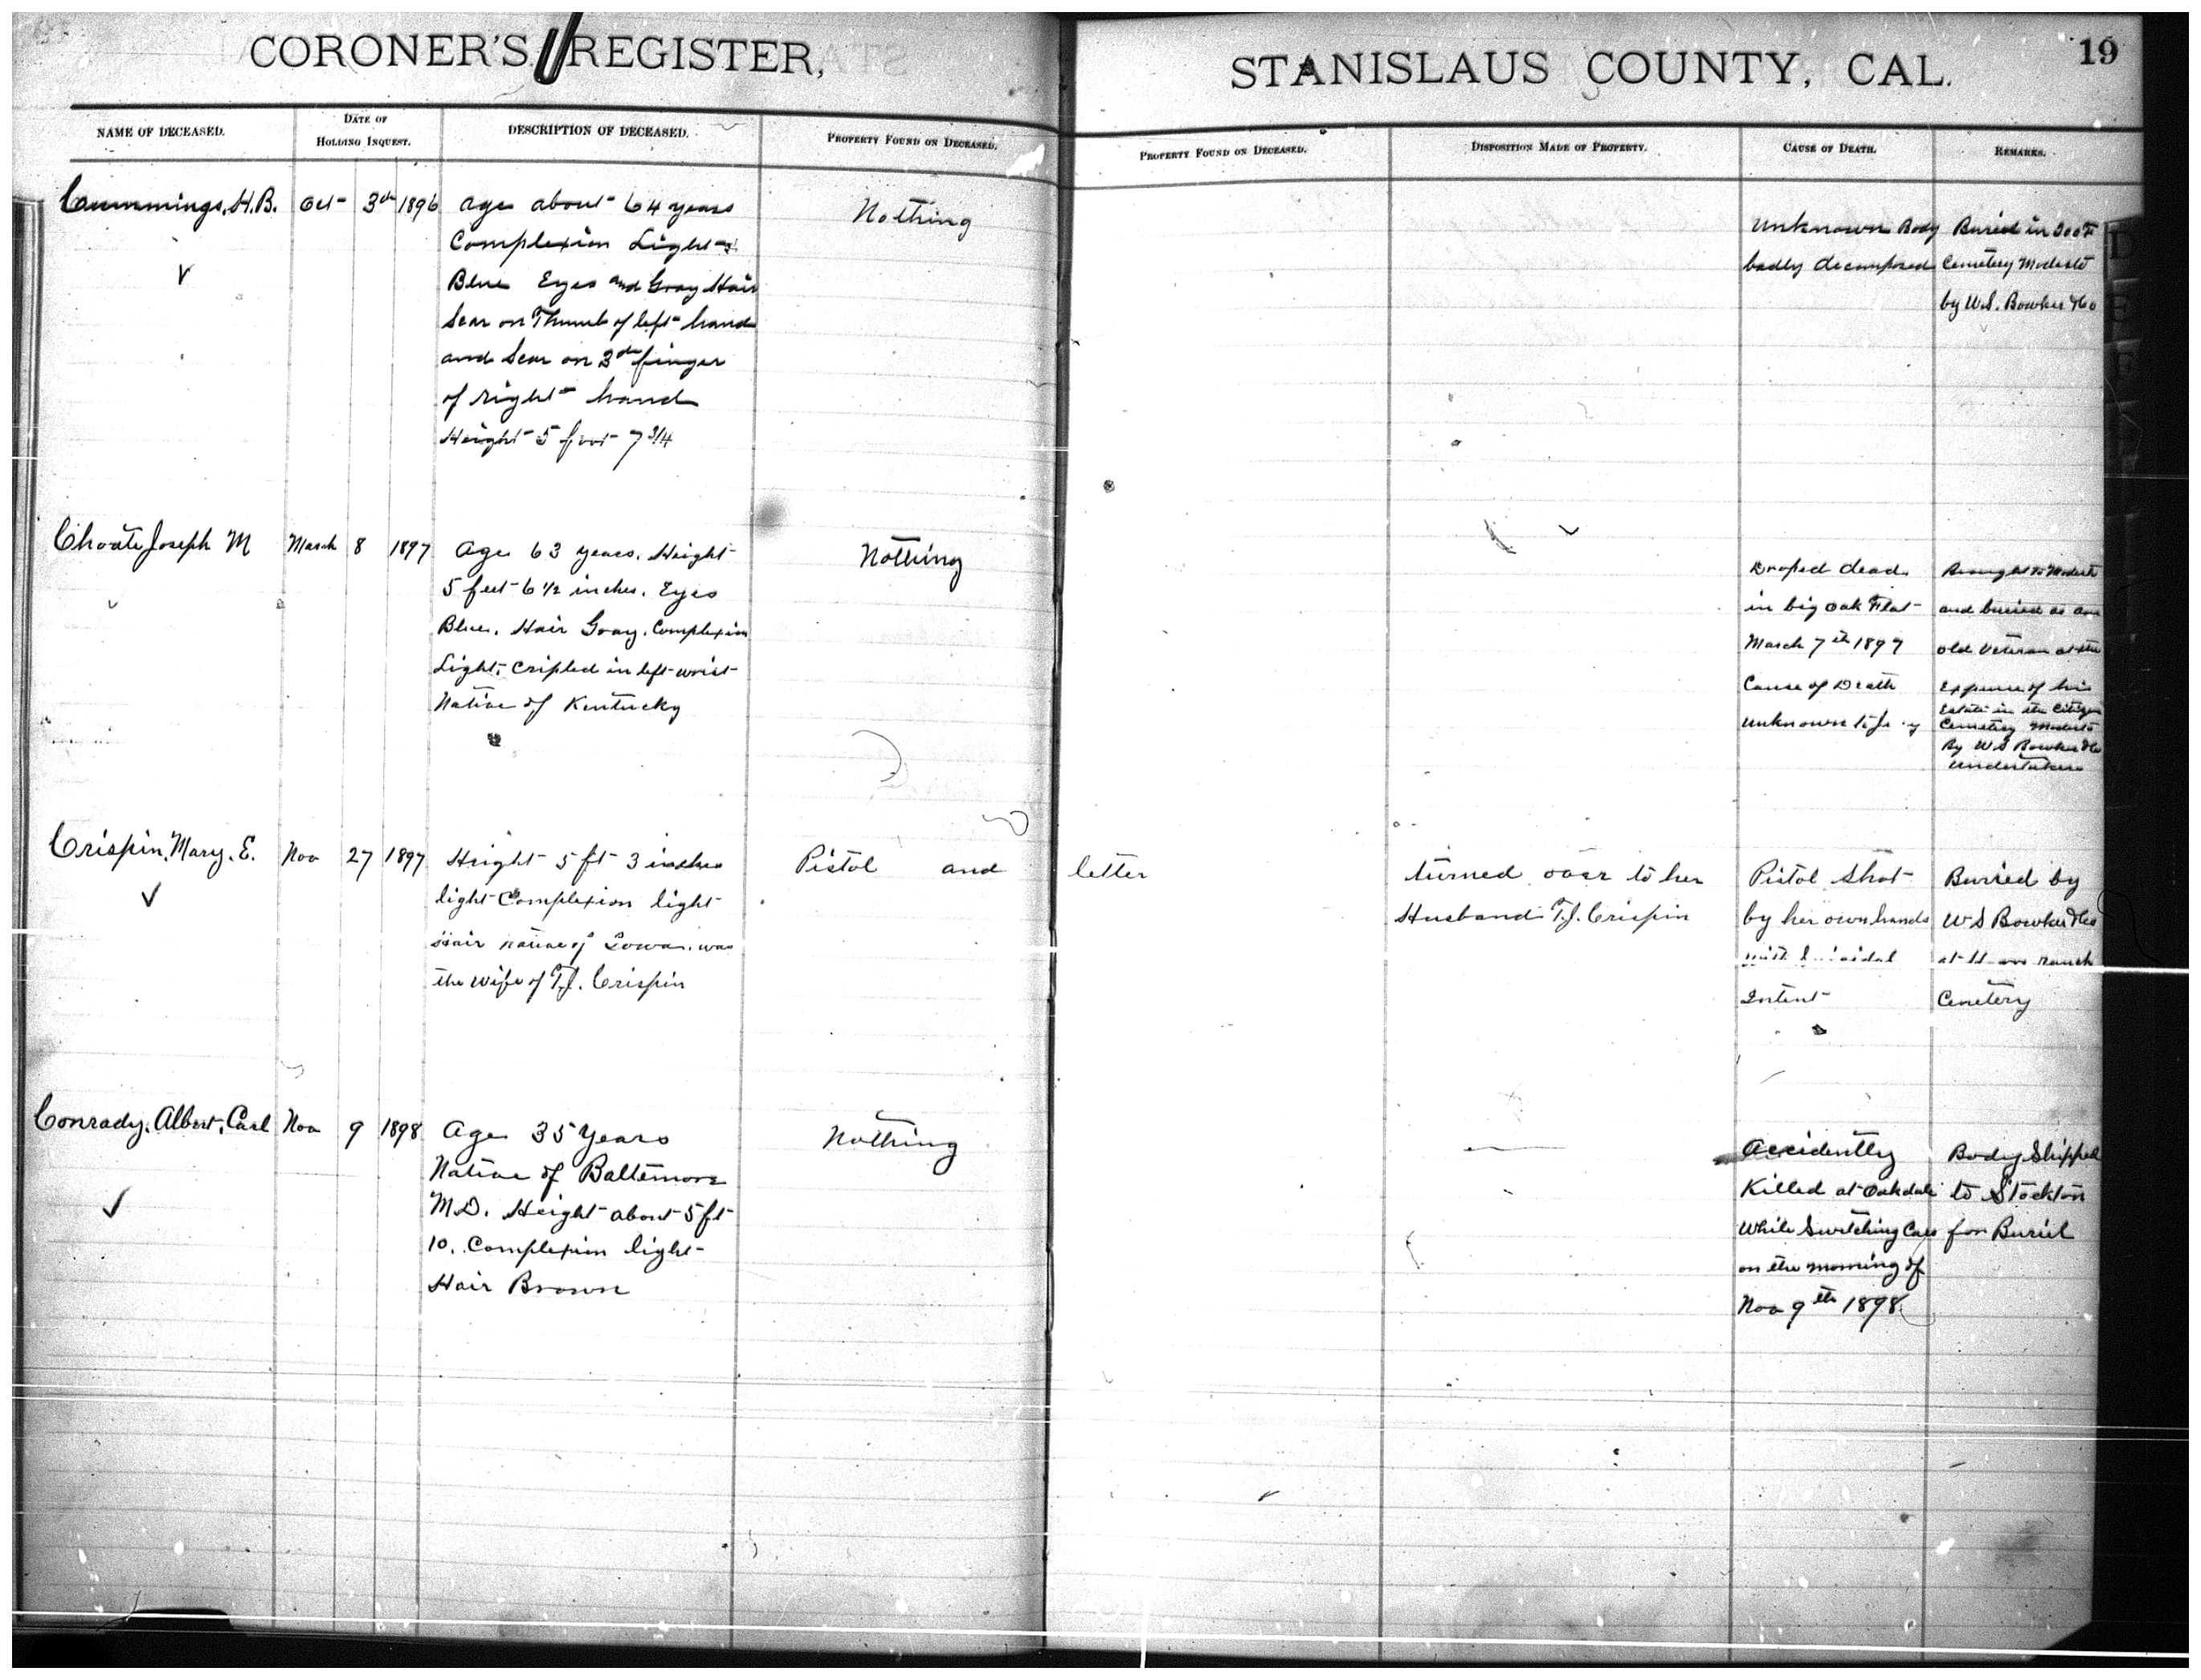 CORONER'S REGISTER,
STANISLAUS COUNTY, CAL.
19
NAME OF DECEASED.
DATE OF
HOLDING INQUEST.
DESCRIPTION OF DECEASED.
PROPERTY FOUND ON DECEASED.
PROPERTY FOUND ON DECEASED.
DISPOSITION MADE OF PROPERTY.
CAUSE OF DEATH.
REMARKS.
Cummings, H.B.
Oct 3rd 1896
age about 64 years
Complexion Light
Blue Eyes and Gray Hair
Scar on Thumb of left hand
and Scar on 3rd finger
of right hand
Height 5 foot 7 3/4
Nothing
Unknown Body
badly decomposed
Buried in IOOF
Cemetery Modesto
by W.S. Bowker & Co
Choate Joseph M
March 8 1897
Age 63 years. Height
5 feet 6 1/2 inches. Eyes
Blue. Hair Gray. Complexion
Light. Cripled in left wrist
Native of Kentucky
Nothing
Droped dead
in big Oak Flat
March 7th 1897
Cause of Death
unknown to
Brought to Modesto
and buried as an
old Veteran at the
Expense of his
Estate in the Citizen
Cemetery Modesto
By W S Bowker & Co
Undertakers
Crispin, Mary. E.
Nov 27 1897
Height 5 ft 3 inches
light Complexion light
Hair native of Iowa. was
the wife of T.J. Crispin
Pistol and letter
turned over to her
Husband T.J. Crispin
Pistol Shot
by her own hands
with
Intent
Buried by
W S Bowker & Co
at ranch
Cemetery
Conrady, Albert, Carl
Nov 9 1898
Age 35 Years
Native of Baltemore
M.D. Height about 5 ft
10. Complexion light
Hair Brown
Nothing
Accidently
Killed at Oakdale
While Switching Cars
on the morning of
Nov 9th 1898
Body Shipped
to Stockton
for Buriel